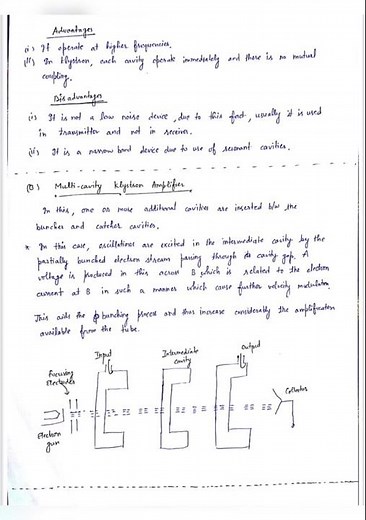 Advantages
(i) It operate at higher frequencies.
(ii) In klystron, each cavity operate immediately and there is no mutual
coupling.
Disadvantages
(i) It is not a low noise device, due to this fact, usually it is used
in transmitter and not in receiver.
(ii) It is a narrow band device due to use of resonant cavities.
Multi-cavity Klystron Amplifier
In this, one or more additional cavities are inserted b/w the
buncher and catcher cavities.
* In this case, oscillations are excited in the intermediate cavity by the
partially bunched electron stream passing through its cavity gap. A
voltage is produced in this across B which is related to the electron
current at B in such a manner which cause further velocity modulation.
This aids the bunching process and thus increase considerably the amplification
available from the tube.
Input
Intermediate
cavity
Output
Focusing
Electrodes
Collector
Electron
gun